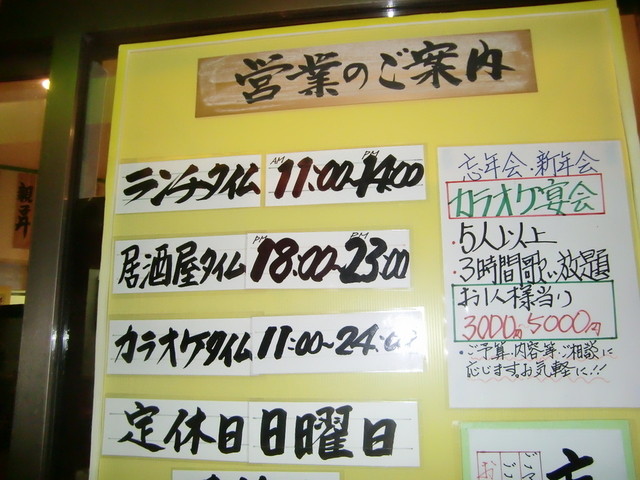 営業のご案内
ランチタイム AM 11:00~PM 14:00
居酒屋タイム PM 18:00~PM 23:00
カラオケタイム 11:00~24:00
定休日 日曜日
忘年会・新年会
カラオケ宴会
・5人以上
・3時間歌い放題
お1人様当り
3000円 5000円
・ご予算、内容、等、ご相談に
応じます。お気軽に!!